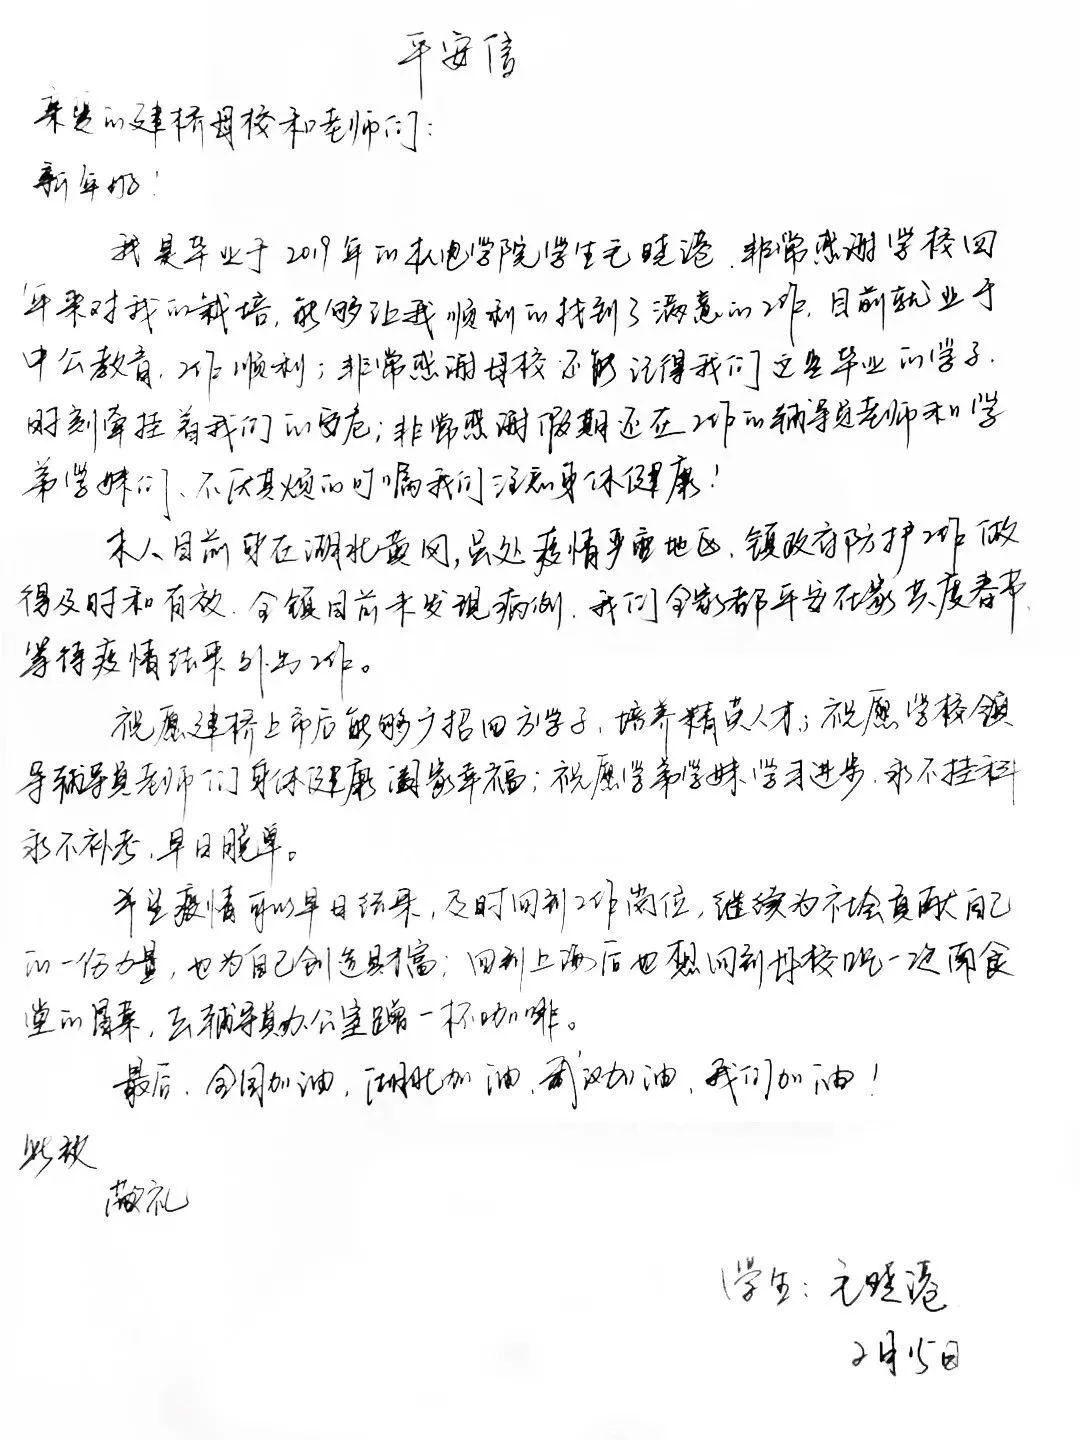 平安信
亲爱的建桥母校和老师们：
新年好！
我是毕业于2019年的机电学院学生元晓港，非常感谢学校四
年来对我的栽培，能够让我顺利的找到了满意的工作，目前就业于
中公教育，工作顺利；非常感谢母校还能记得我们这些毕业的学子，
时刻牵挂着我们的安危；非常感谢假期还在工作的辅导员老师和学
弟学妹们、不厌其烦的叮嘱我们注意身体健康！
本人目前身在湖北黄冈，虽处疫情严重地区，镇政府防护工作做
得及时和有效，全镇目前未发现病例，我们全家都平安在家共度春节，
等待疫情结束外出工作。
祝愿建桥上市后能够广招四方学子，培养精英人才；祝愿学校领
导辅导员老师们身体健康阖家幸福；祝愿学弟学妹学习进步，永不挂科
永不补考，早日脱单。
希望疫情可以早日结束，及时回到工作岗位，继续为社会贡献自己
的一份力量，也为自己创造财富；回到上海后也想回到母校吃一次南食
堂的酸菜，去辅导员办公室蹭一杯咖啡。
最后，全国加油，湖北加油，武汉加油，我们加油！
此致
敬礼
学生：元晓港
2月15日